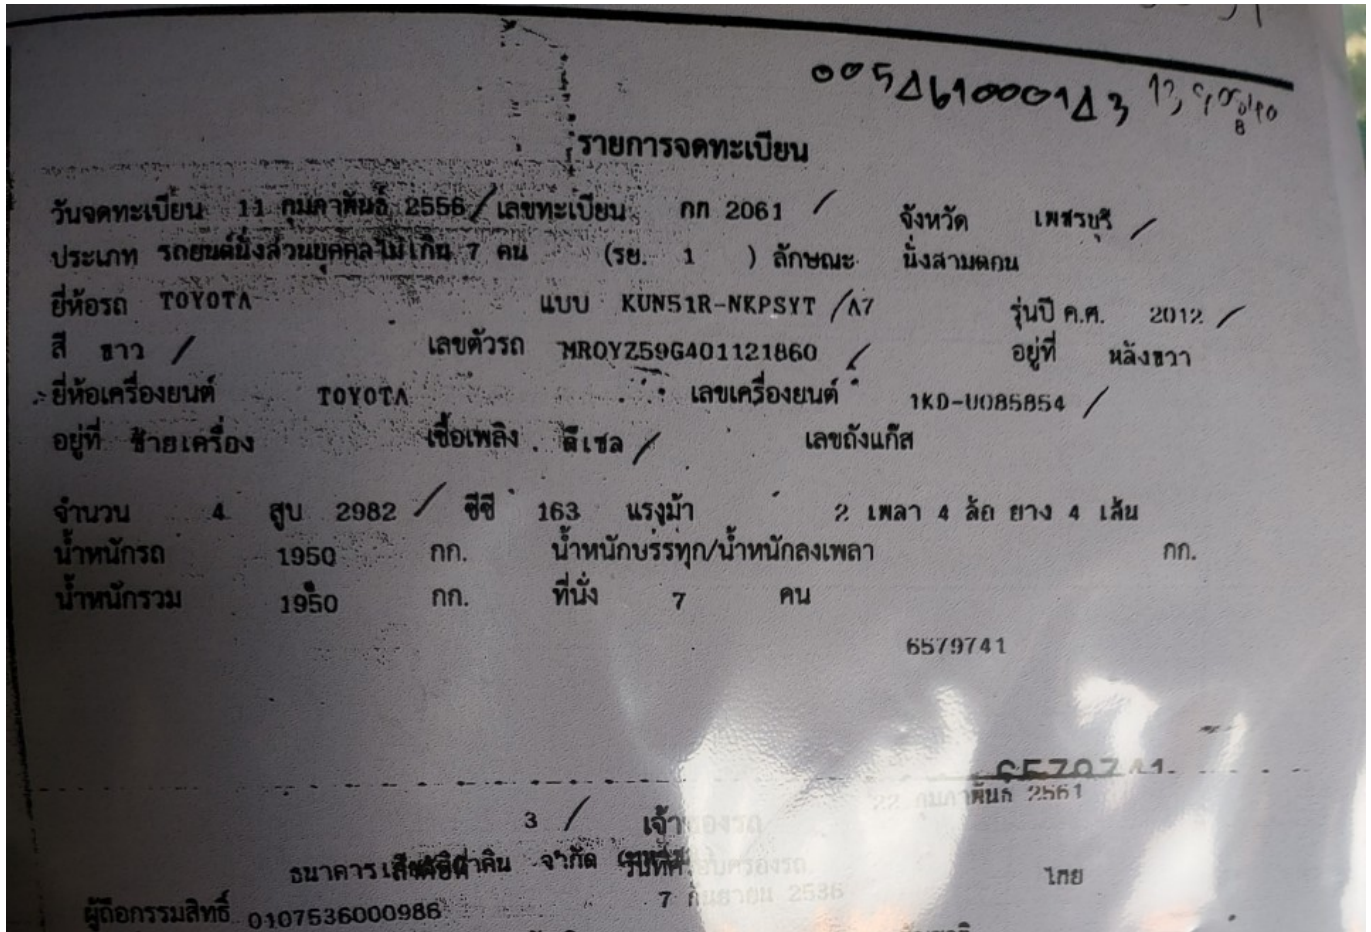 005461000143
รายการจดทะเบียน
วันจดทะเบียน 11 กุมภาพันธ์ 2556 / เลขทะเบียน กก 2061 / จังหวัด เพชรบุรี /
ประเภท รถยนต์นั่งส่วนบุคคลไม่เกิน 7 คน (รย. 1 ) ลักษณะ นั่งสามตอน
ยี่ห้อรถ TOYOTA แบบ KUN51R-NKPSYT /A7 รุ่นปี ค.ศ. 2012 /
สี ขาว / เลขตัวรถ MROYZ59G401121860 / อยู่ที่ หลังขวา
ยี่ห้อเครื่องยนต์ TOYOTA เลขเครื่องยนต์ 1KD-U085854 /
อยู่ที่ ซ้ายเครื่อง เชื้อเพลิง ดีเซล / เลขถังแก๊ส
จำนวน 4 สูบ 2982 / ซีซี 163 แรงม้า 2 เพลา 4 ล้อ ยาง 4 เส้น
น้ำหนักรถ 1950 กก. น้ำหนักบรรทุก/น้ำหนักลงเพลา กก.
น้ำหนักรวม 1950 กก. ที่นั่ง 7 คน
6579741
6579741
3 / เจ้าของรถ 22 กุมภาพันธ์ 2561
ธนาคาร จำกัด ไทย
ผู้ถือกรรมสิทธิ์ 0107536000986 7 กันยายน 2536